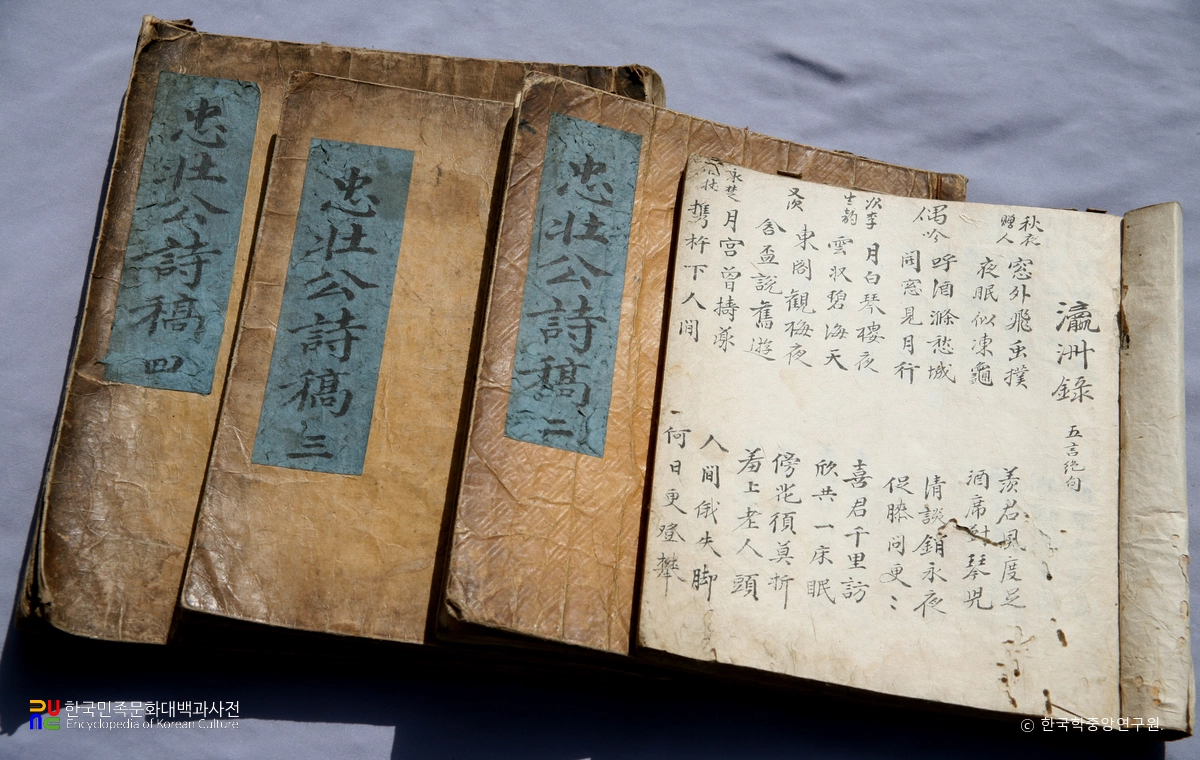 忠壯公詩稿 四
忠壯公詩稿 三
忠壯公詩稿 二
瀛洲錄 五言絶句
窓外飛虫撲 羨君風度足
夜眠似凍龜 酒席對琴児
偶吟 呼酒滌愁城 清談銷永夜
開窓見月行 促膝问更〻
次李生韵 月白琴樓夜 喜君千里訪
雲収碧海天 欣共一床眠
東閣觀梅夜 傍花須莫折
舍盃說舊遊 羞上老人頭
月宮曾擣藥 人間俄失脚
携杵下人间 何日更登攀
한국민족문화대백과사전
Encyclopedia of Korean Culture
© 한국학중앙연구원.